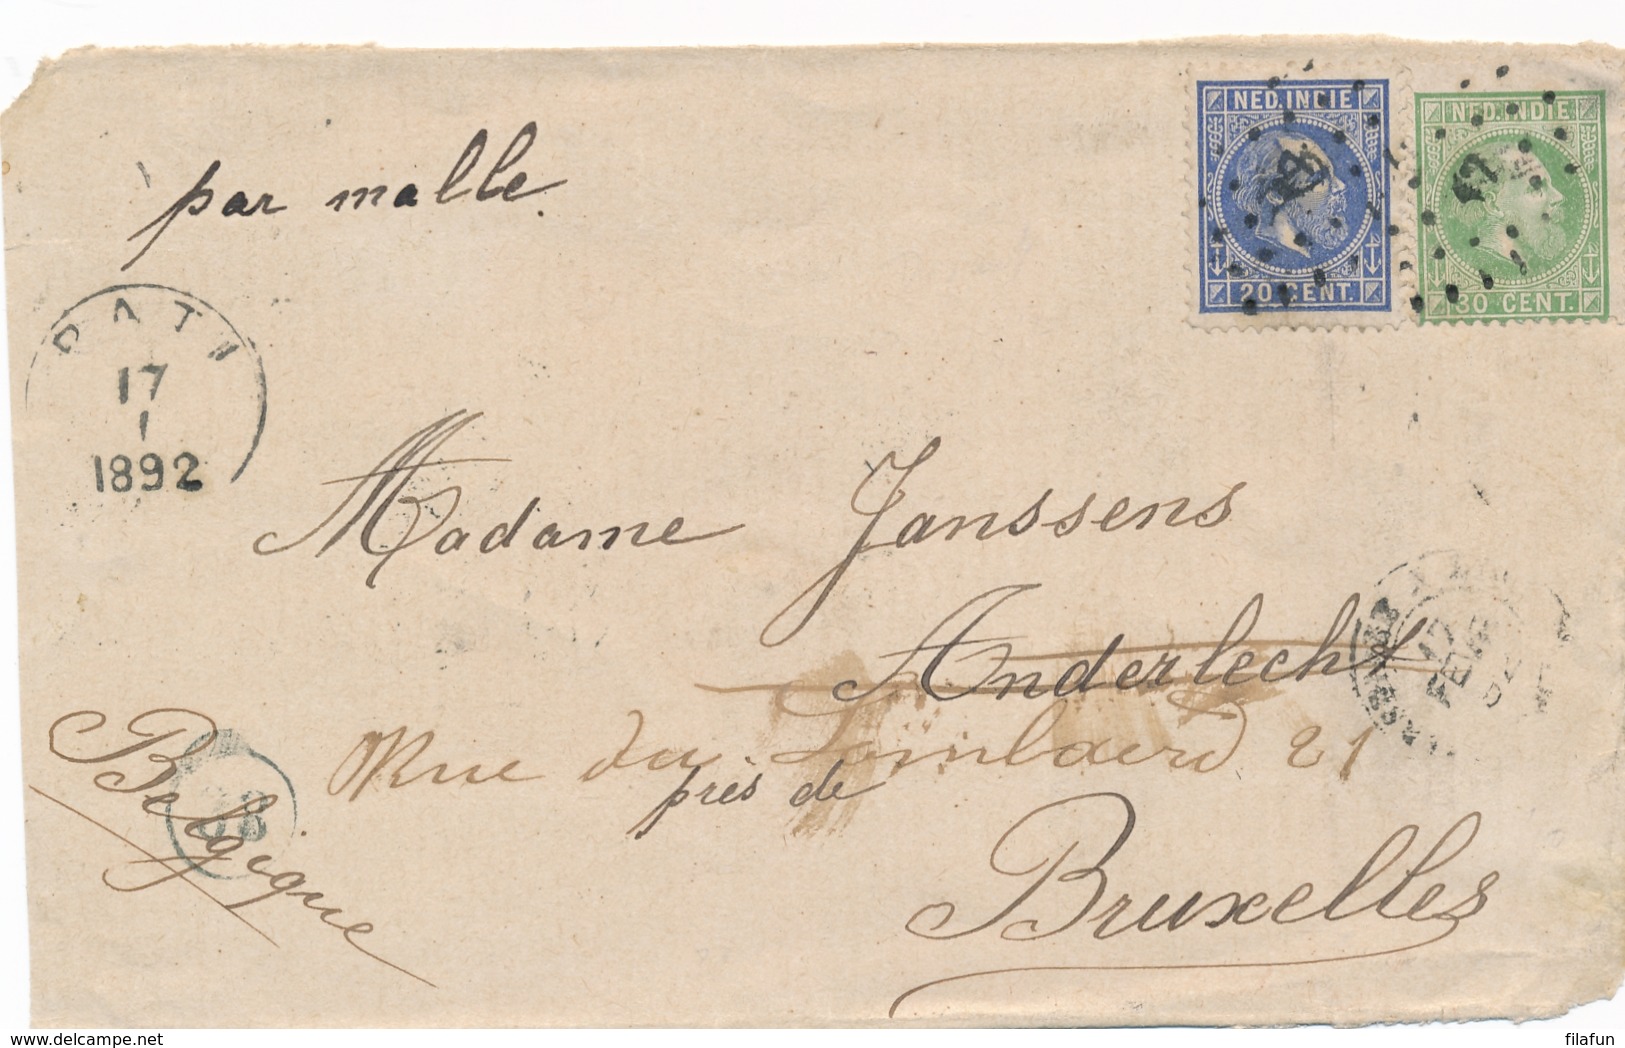 NED. INDIE
20 CENT.
NED. INDIE
30 CENT.
par malle.
PATI
17
1
1892
Madame Janssens
Anderlecht
Rue du Lombaerd 21
près de
Bruxelles
Belgique
FEVR
delcampe.net
filafun